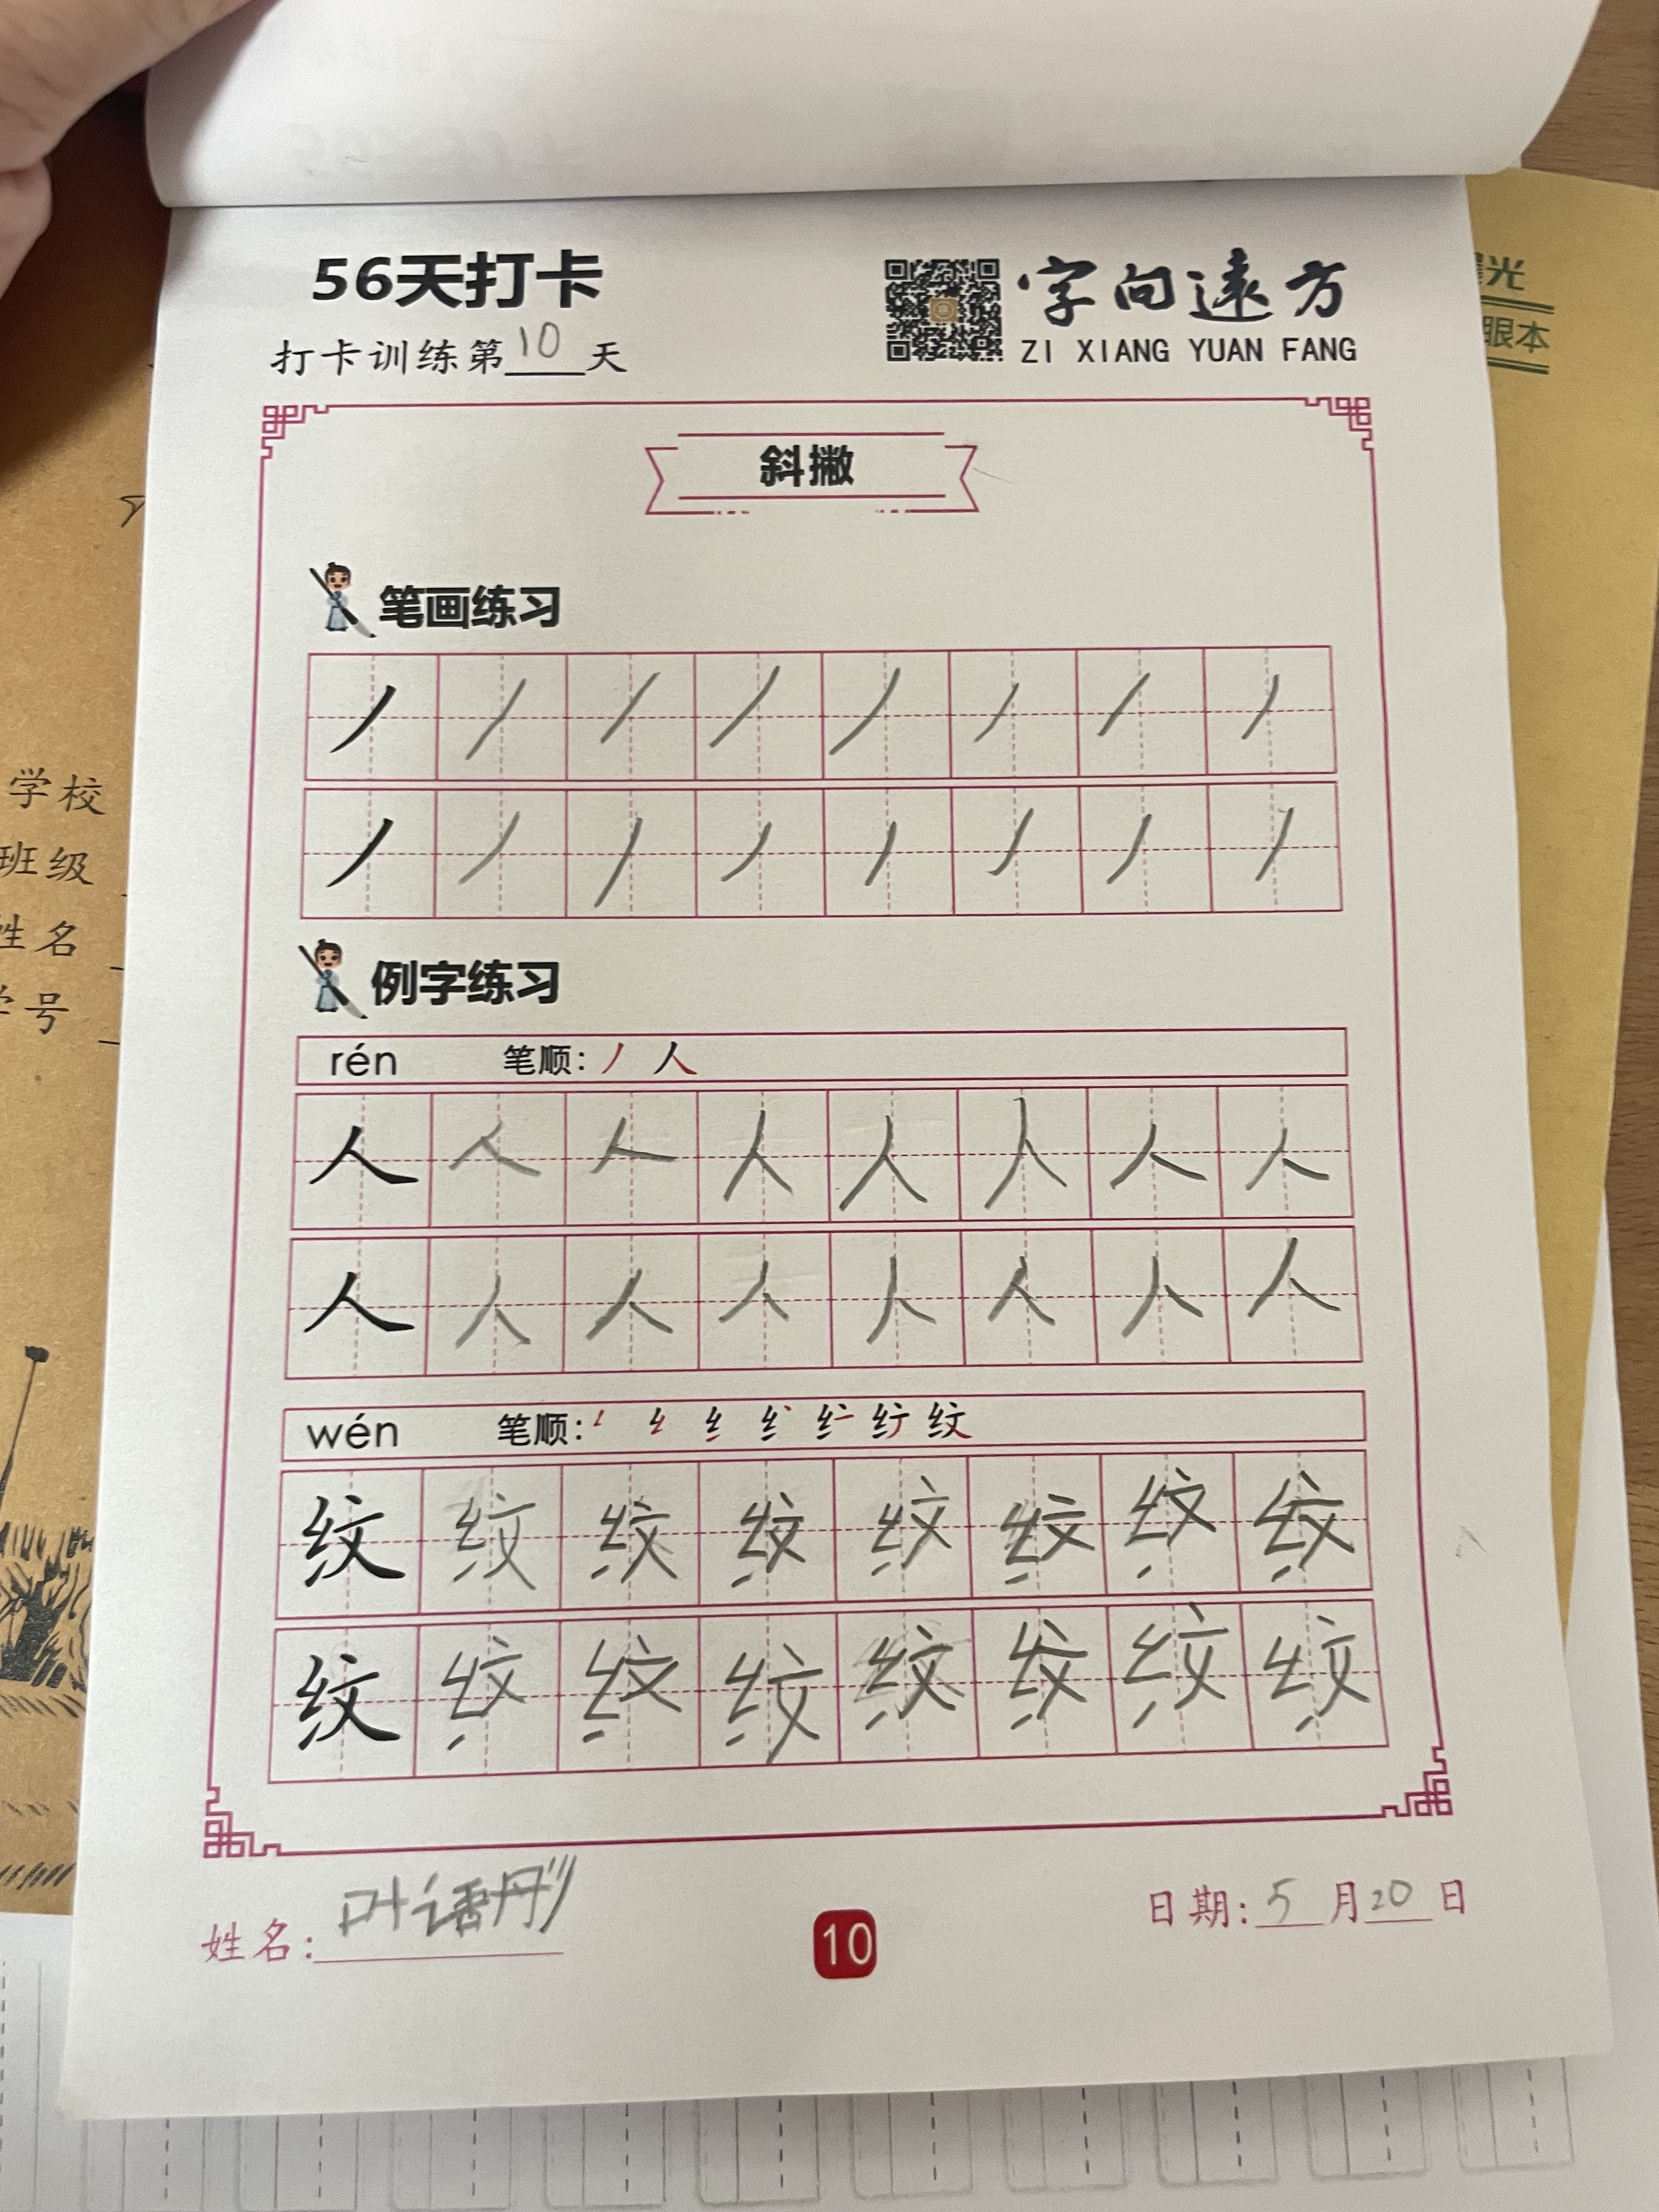 56天打卡
字向远方
打卡训练第10天
ZI XIANG YUAN FANG
斜撇
笔画练习
丿 丿 丿 丿 丿 丿 丿 丿
丿 丿 丿 丿 丿 丿 丿 丿
例字练习
rén 笔顺: 丿 人
人 人 人 人 人 人 人 人
人 人 人 人 人 人 人 人
wén 笔顺:
纹 纹 纹 纹 纹 纹 纹 纹
纹 纹 纹 纹 纹 纹 纹 纹
姓名:叶语彤
10
日期:5月20日
学校
班级
姓名
学号
光
眼本